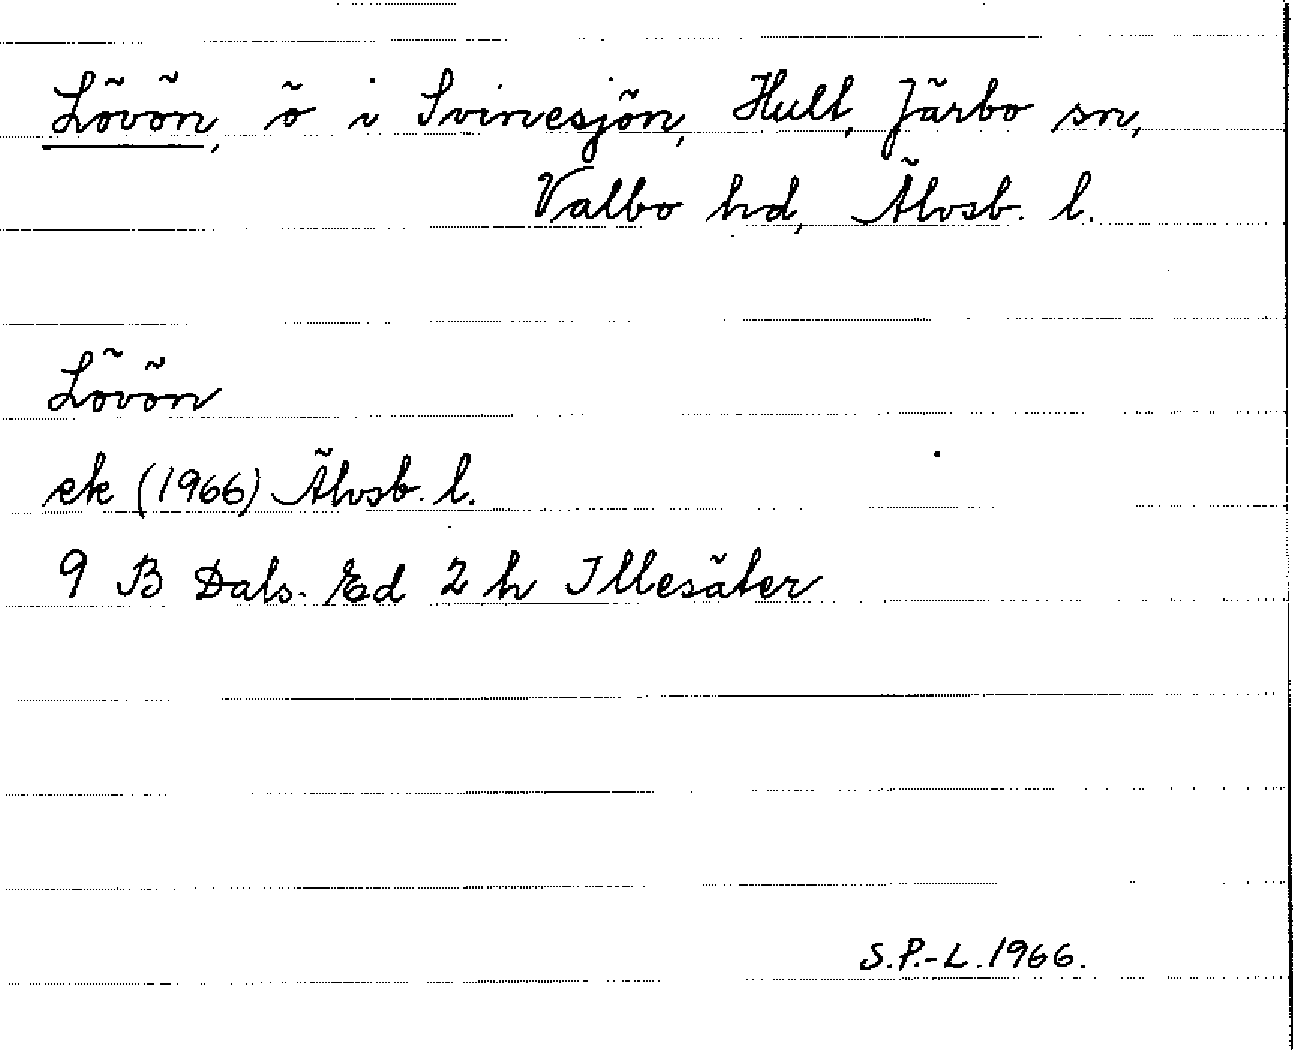 Lövön, ö i Svinesjön, Hult, Järbo sn,
Valbo hd, Älvsb. l.
Lövön
ek (1966) Älvsb. l.
9 B Dals-Ed 2 h Illesäter
S.P.-L. 1966.